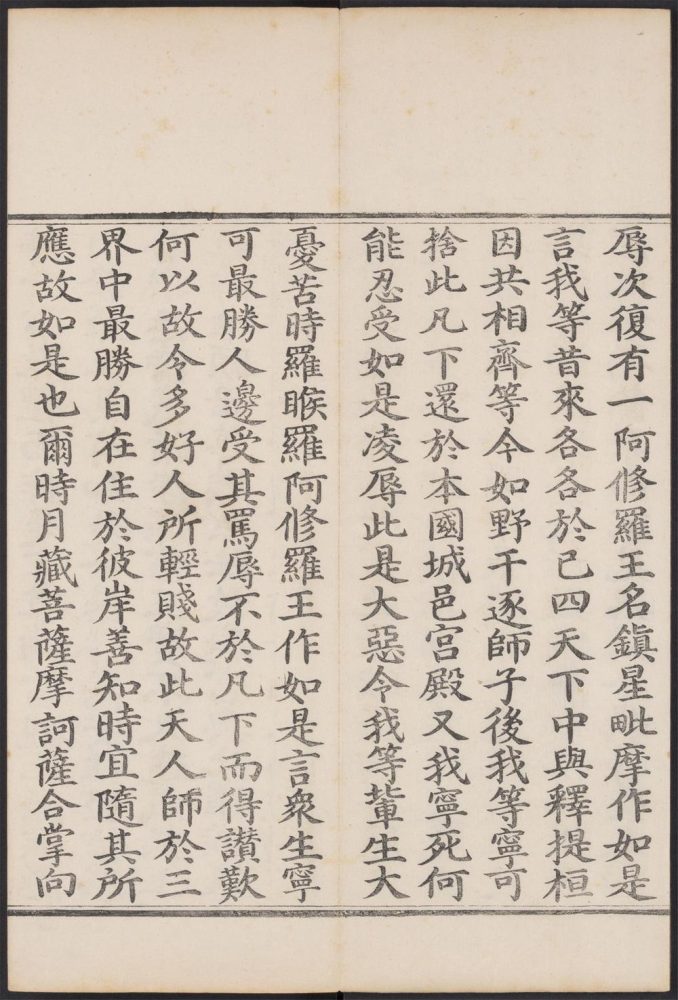 辱次復有一阿修羅王名鎮星毗摩作如是
言我等昔來各各於己四天下中與釋提桓
因共相齊等今如野干逐師子後我等寧可
捨此凡下還於本國城邑宮殿又我寧死何
能忍受如是凌辱此是大惡令我等軰生大
憂苦時羅睺羅阿修羅王作如是言衆生寧
可最勝人邊受其罵辱不於凡下而得讃歎
何以故令多好人所輕賤故此天人師於三
界中最勝自在住於彼岸善知時宜隨其所
應故如是也爾時月藏菩薩摩訶薩合掌向